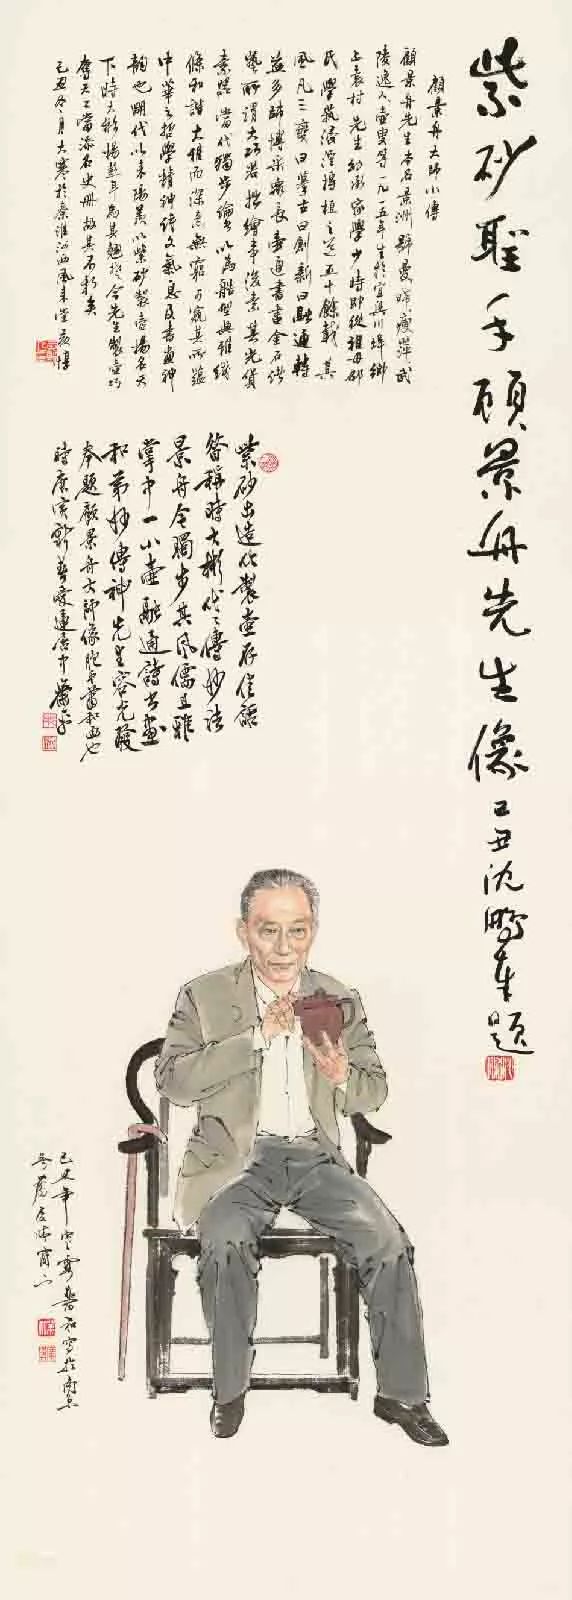 紫砂聖手顧景舟先生像己丑沈鵬奉題
顧景舟大師小傳
顧景舟先生本名景洲號曼晞瘦萍武
陵逸人壺叟等一九一五年生於宜興川埠鄉
上袁村先生幼承家學少時即從祖母邵
氏學藝浸淫陶植之道五十餘載其
風凡三變曰摹古曰創新曰融通轉
益多師博采衆長壺通書畫金石諸
藝所謂大巧若拙繪事後素其光貨
素器當代獨步論者以為船型典雅綫
條和諧大雅而深意無窮可窺其所蘊
中華之哲學精神詩文氣息及書畫神
韻也明代以來陽羨以紫砂製壺揚名天
下時大彬楊彭年為其翹楚今先生製壺巧
奪天工當添名史册故其不朽矣
己丑冬月大寒於秦淮河西風來堂袁博
紫砂出造化製壺存佳話
昔稱時大彬代代傳妙法
景舟今獨步其風儒且雅
掌中一小壺融通詩書畫
和弟妙傳神先生容光發
奉題顧景舟大師像肥弟蕭和画也
時庚寅新春愛蓮居中蕭平
己丑年寒露蕭和寫於南京